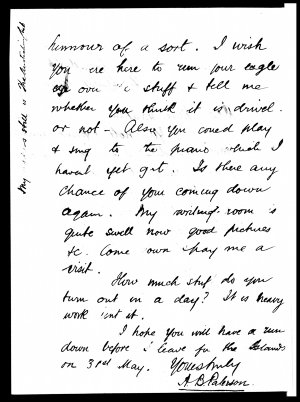 humour of a sort. I wish
you were here to run your eagle
eye over stuff & tell me
whether you think it is drivel
or not - Also you could play
& sing to the piano which I
havent yet got. Is there any
chance of your coming down
again. My writing-room is
quite swell now good pictures
&c. Come down & pay me a
visit.
How much stuff do you
turn out in a day? It is heavy
work isnt it.
I hope you will have a run
down before i leave for the Islands
on 31st May. Yours truly
A B Paterson.
My address still is